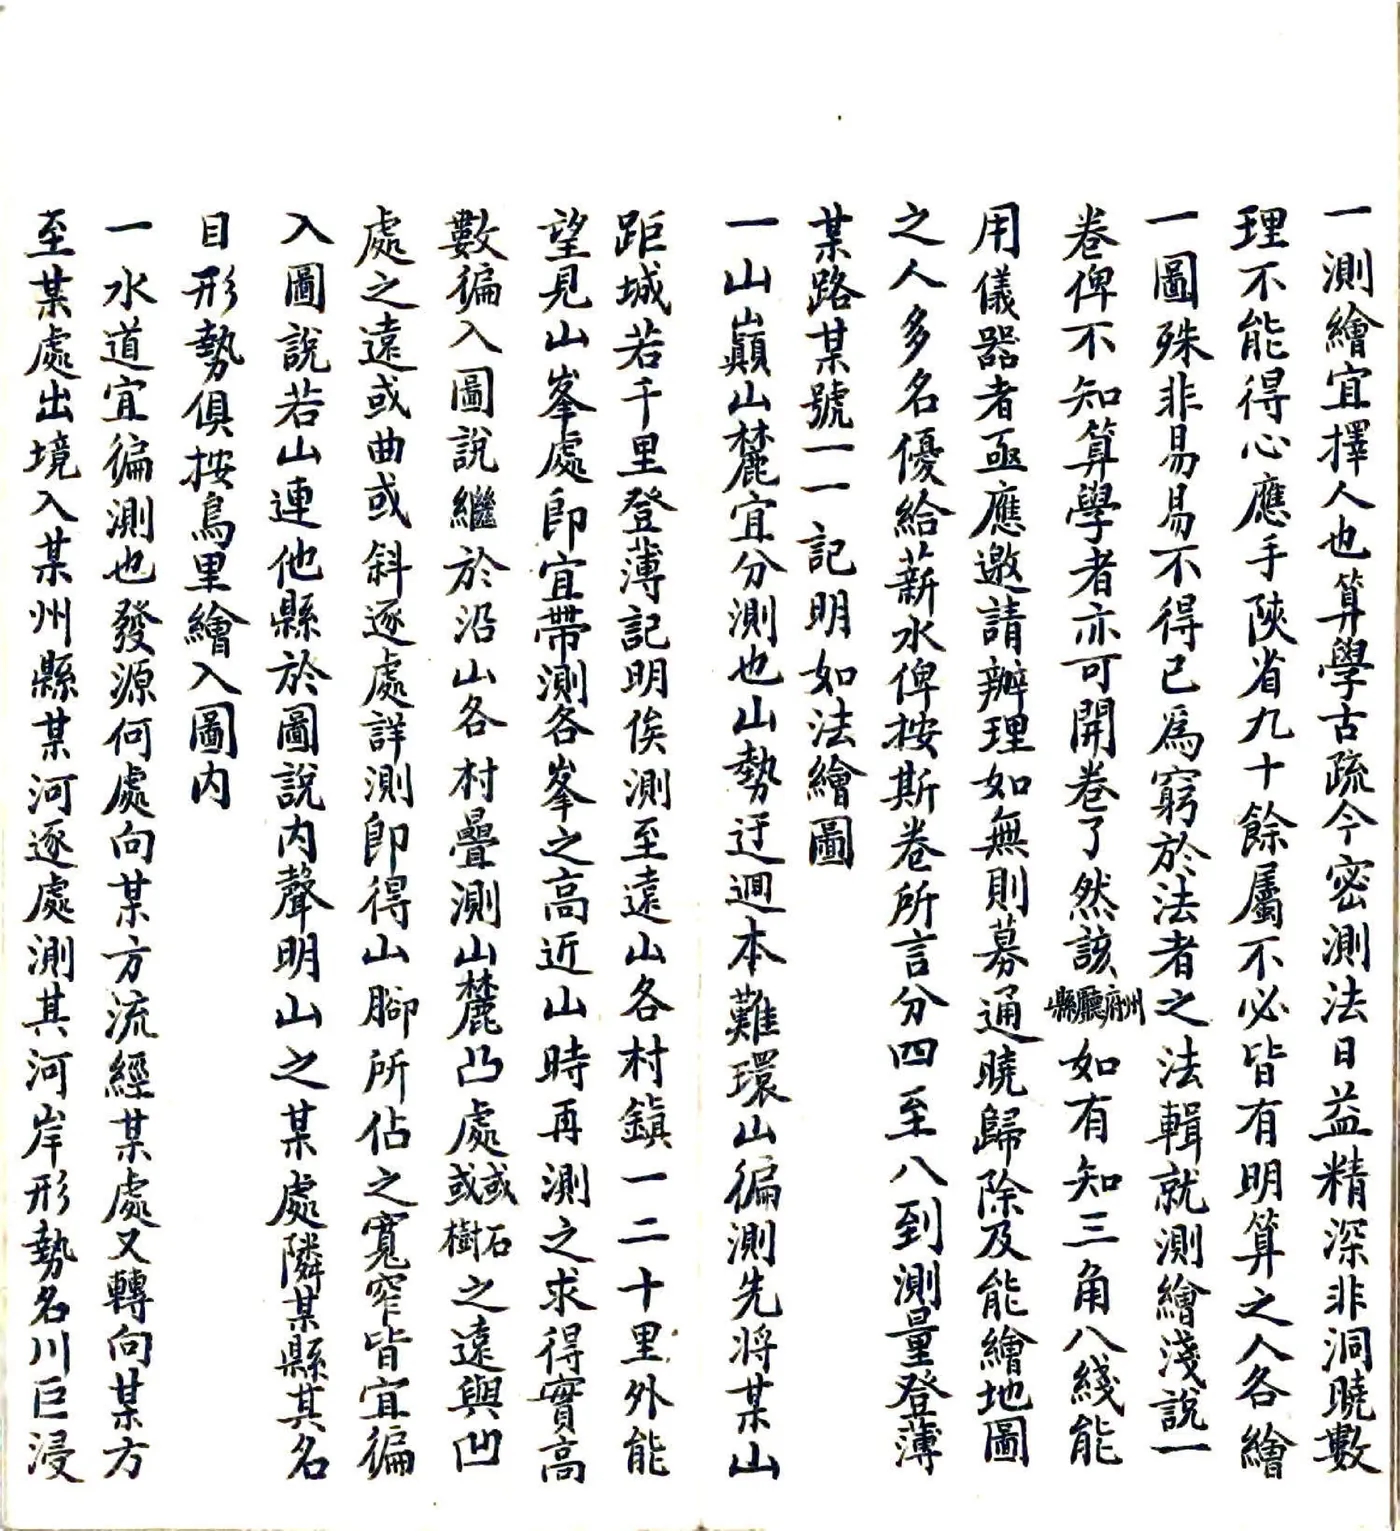 一測繪宜擇人也算學古疏今密測法日益精深非洞曉數
理不能得心應手陝省九十餘屬不必皆有明算之人各繪
一圖殊非易易不得已爲窮於法者之法輯就測繪淺說一
卷俾不知算學者亦可開卷了然該州府廳縣如有知三角八綫能
用儀器者亟應邀請辦理如無則募通曉歸除及能繪地圖
之人多名優給薪水俾按斯卷所言分四至八到測量登薄
某路某號一一記明如法繪圖
一山巔山麓宜分測也山勢迂迴本難環山徧測先將某山
距城若干里登薄記明俟測至遠山各村鎮一二十里外能
望見山峯處即宜帶測各峯之高近山時再測之求得實高
數徧入圖說繼於沿山各村疊測山麓凸處或石或樹之遠與凹
處之遠或曲或斜逐處詳測即得山腳所佔之寬窄皆宜徧
入圖說若山連他縣於圖說內聲明山之某處隣某縣其名
目形勢俱按鳥里繪入圖內
一水道宜徧測也發源何處向某方流經某處又轉向某方
至某處出境入某州縣某河逐處測其河岸形勢名川巨浸